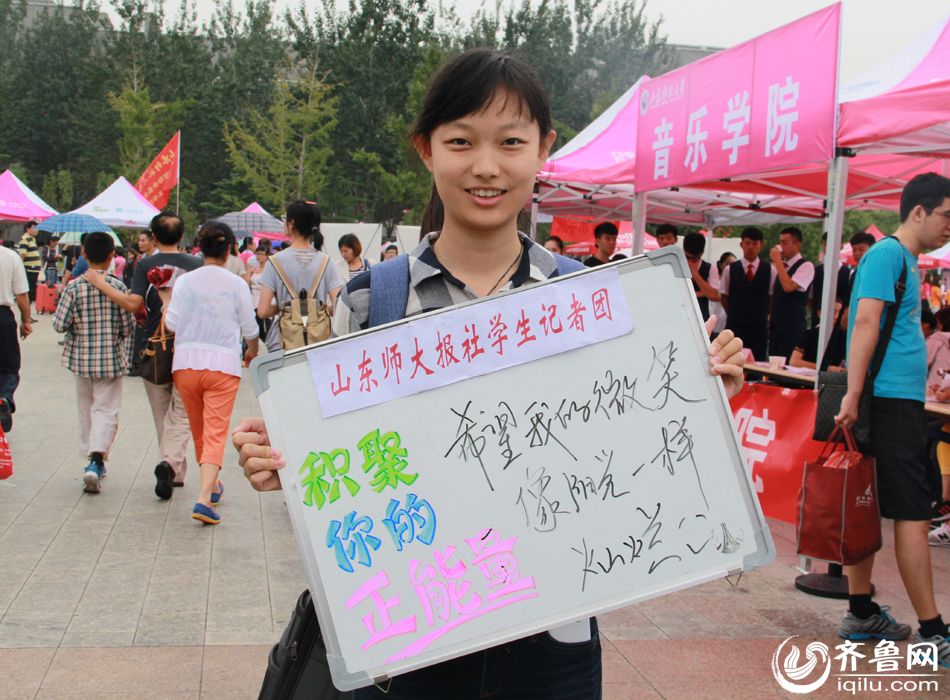 音乐学院
山东师大报社学生记者团
积聚
你的
正能量
希望我的微笑
像阳光一样
灿烂
院
齐鲁网
iqilu.com